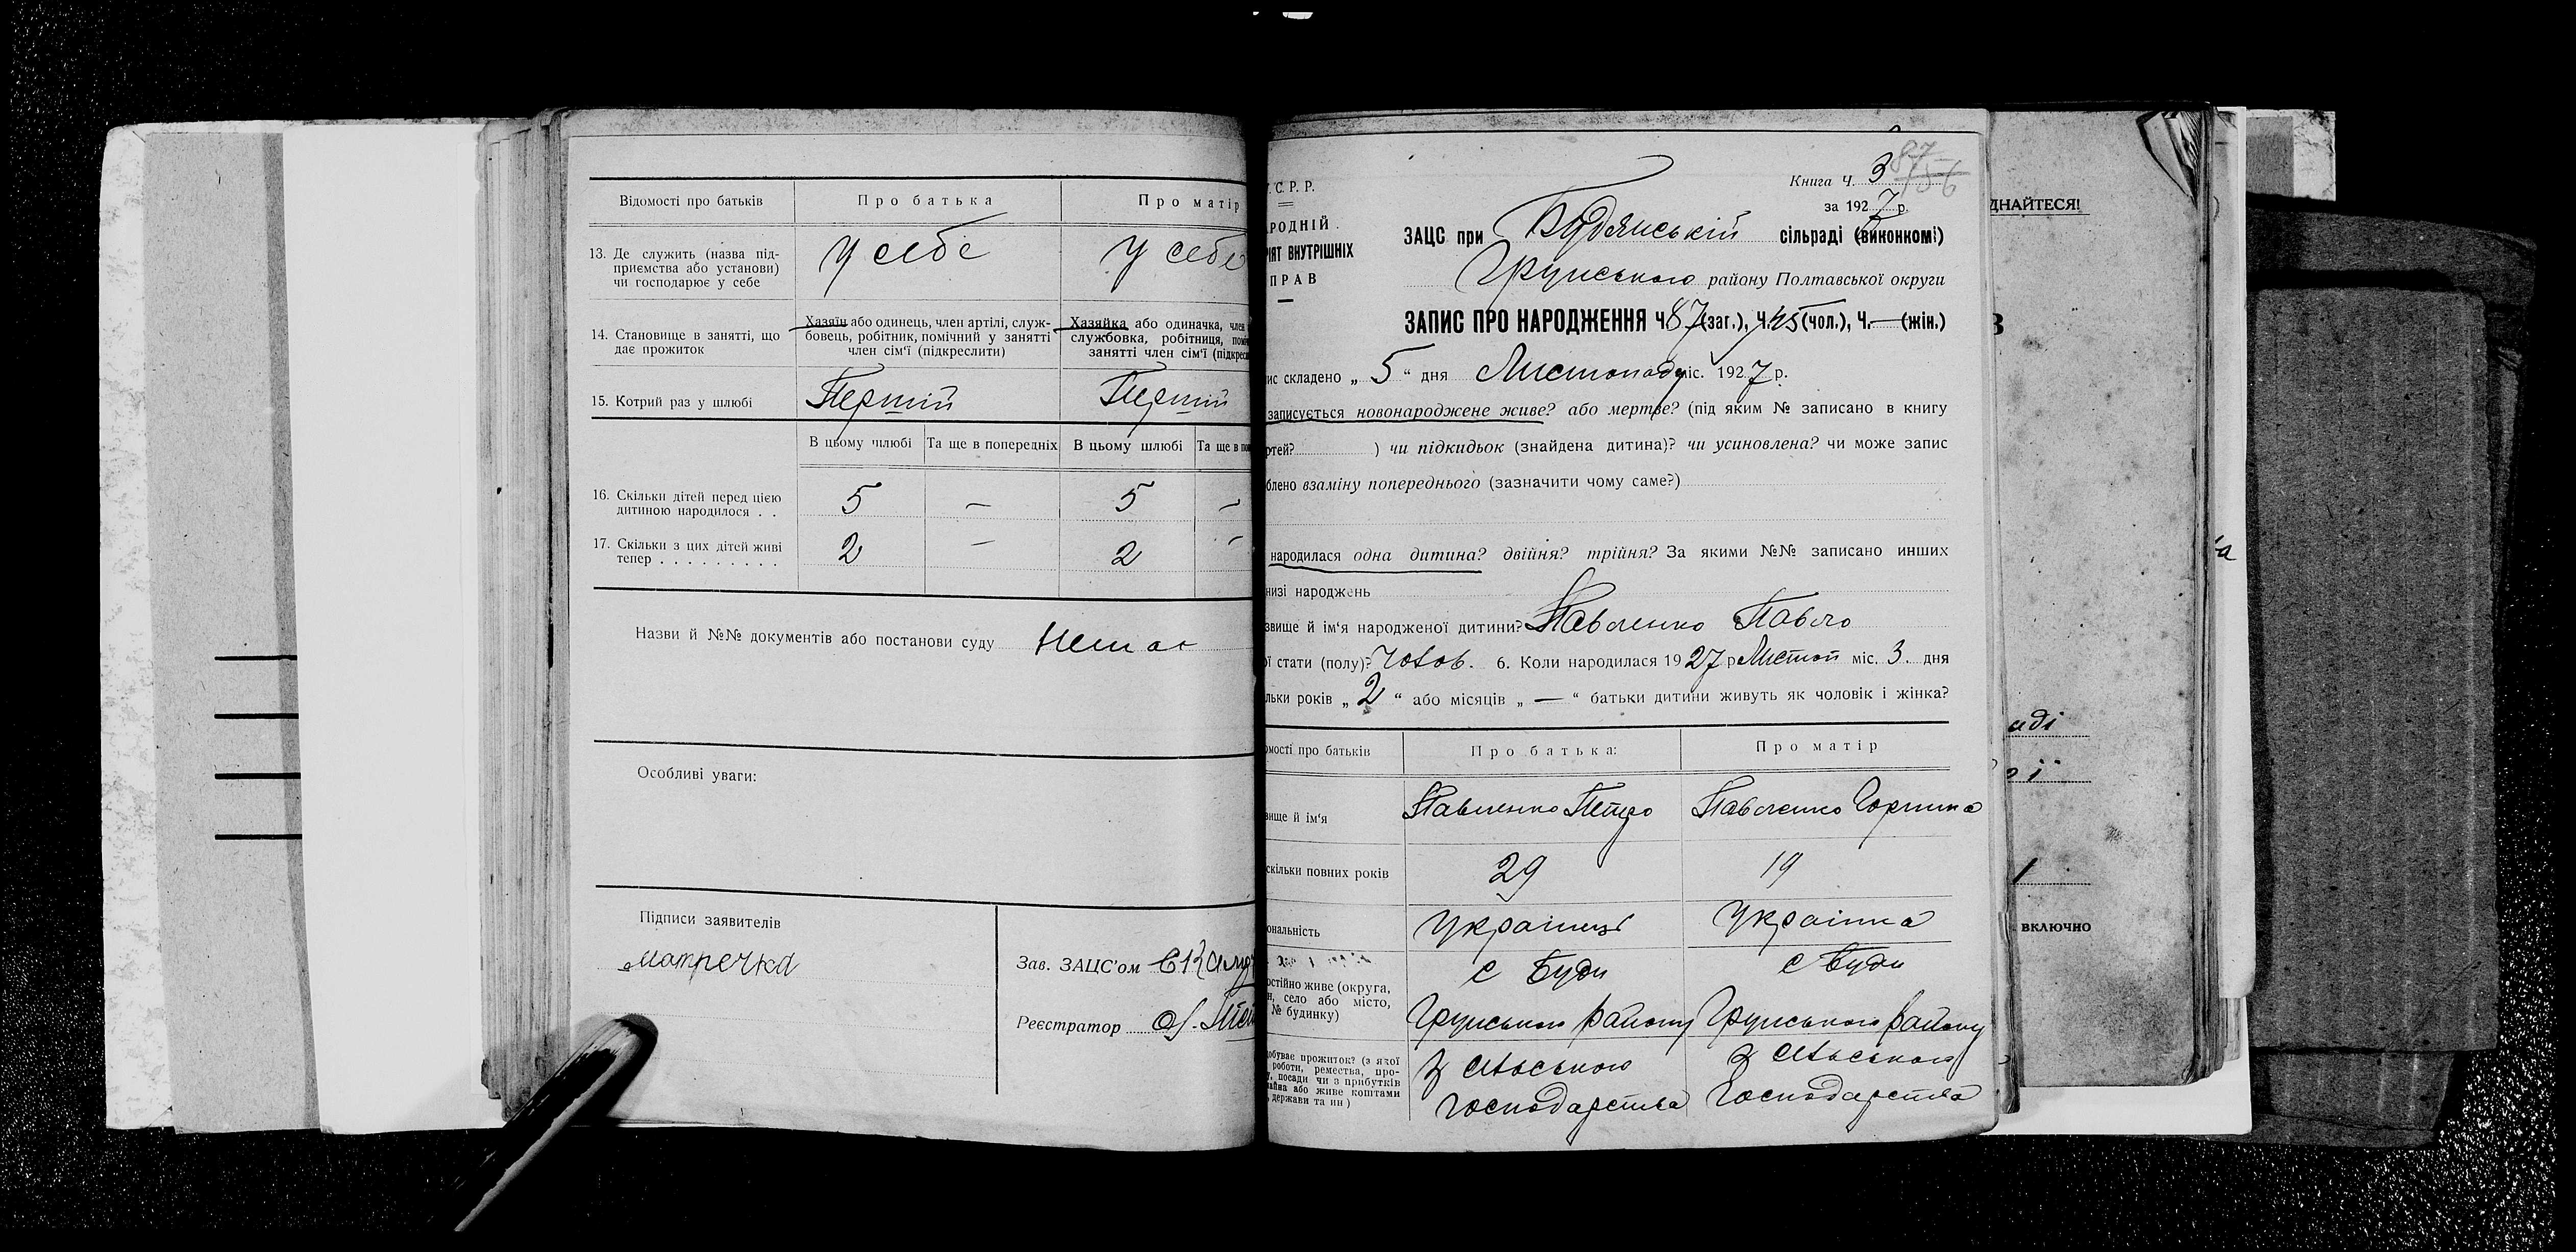 Відомості про батьків
Про батька
Про матір
13. Де служить (назва під-
приємства або установи)
чи господарює у себе
у себе
у себе
14. Становище в занятті, що
дає прожиток
Хазяїн або одинець, член артілі, служ-
бовець, робітник, помічний у занятті
член сім'ї (підкреслити)
Хазяйка або одиначка, член
службовка, робітниця,
занятті член сім'ї
15. Котрий раз у шлюбі
Перший
Перший
В цьому шлюбі
Та ще в попередніх
В цьому шлюбі
Та ще в
16. Скільки дітей перед цією
дитиною народилося . .
5 — 5 —
17. Скільки з цих дітей живі
тепер . . . . . . . . .
2 — 2 —
Назви й №№ документів або постанови суду Немає
Особливі уваги:
Підписи заявителів
Зав. ЗАЦС'ом
Реєстратор
С. Р. Р.
РОДНІЙ
ІЯТ ВНУТРІШНІХ
ПРАВ
87
156
Книга Ч. 3
за 1927 р.
ЗАЦС при Будянській сільраді (виконкомі)
Грунського району Полтавської округи
ЗАПИС ПРО НАРОДЖЕННЯ Ч. 87 (заг.), Ч. 45 (чол.), Ч. — (жін.)
ис складено „ 5 “ дня Листопаду міс. 1927 р.
записується новонароджене живе? або мертве? (під яким № записано в книгу
ртей? ) чи підкидьок (знайдена дитина)? чи усиновлена? чи може запис
блено взаміну попереднього (зазначити чому саме?)
народилася одна дитина? двійня? трійня? За якими №№ записано инших
низі народжень
звище й ім'я народженої дитини? Павленко Павло
ої стати (полу)? чолов. 6. Коли народилася 1927 р Листоп міс. 3. дня
льки років „ 2 “ або місяців „ — “ батьки дитини живуть як чоловік і жінка?
омості про батьків
Про батька:
Про матір
вище й ім'я
Павленко Петро
Павленко Горпина
скільки повних років
29
19
ональність
Українець
Українка
остійно живе (округа,
н, село або місто,
№ будинку)
с Буди
Грунського району
с Буди
Грунського району
обуває прожиток? (з якої
роботи, ремества, про-
посади чи з прибутків
айна або живе коштами
держави та ин)
З сільського
господарства
З сільського
господарства
ДНАЙТЕСЯ!
В
аді
ої
включно